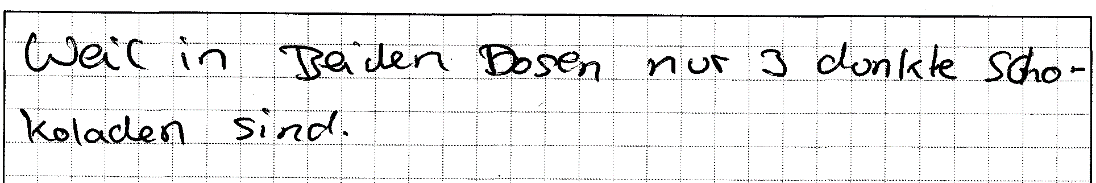 Weil in Beiden Dosen nur 3 dunkle Scho-
koladen sind.